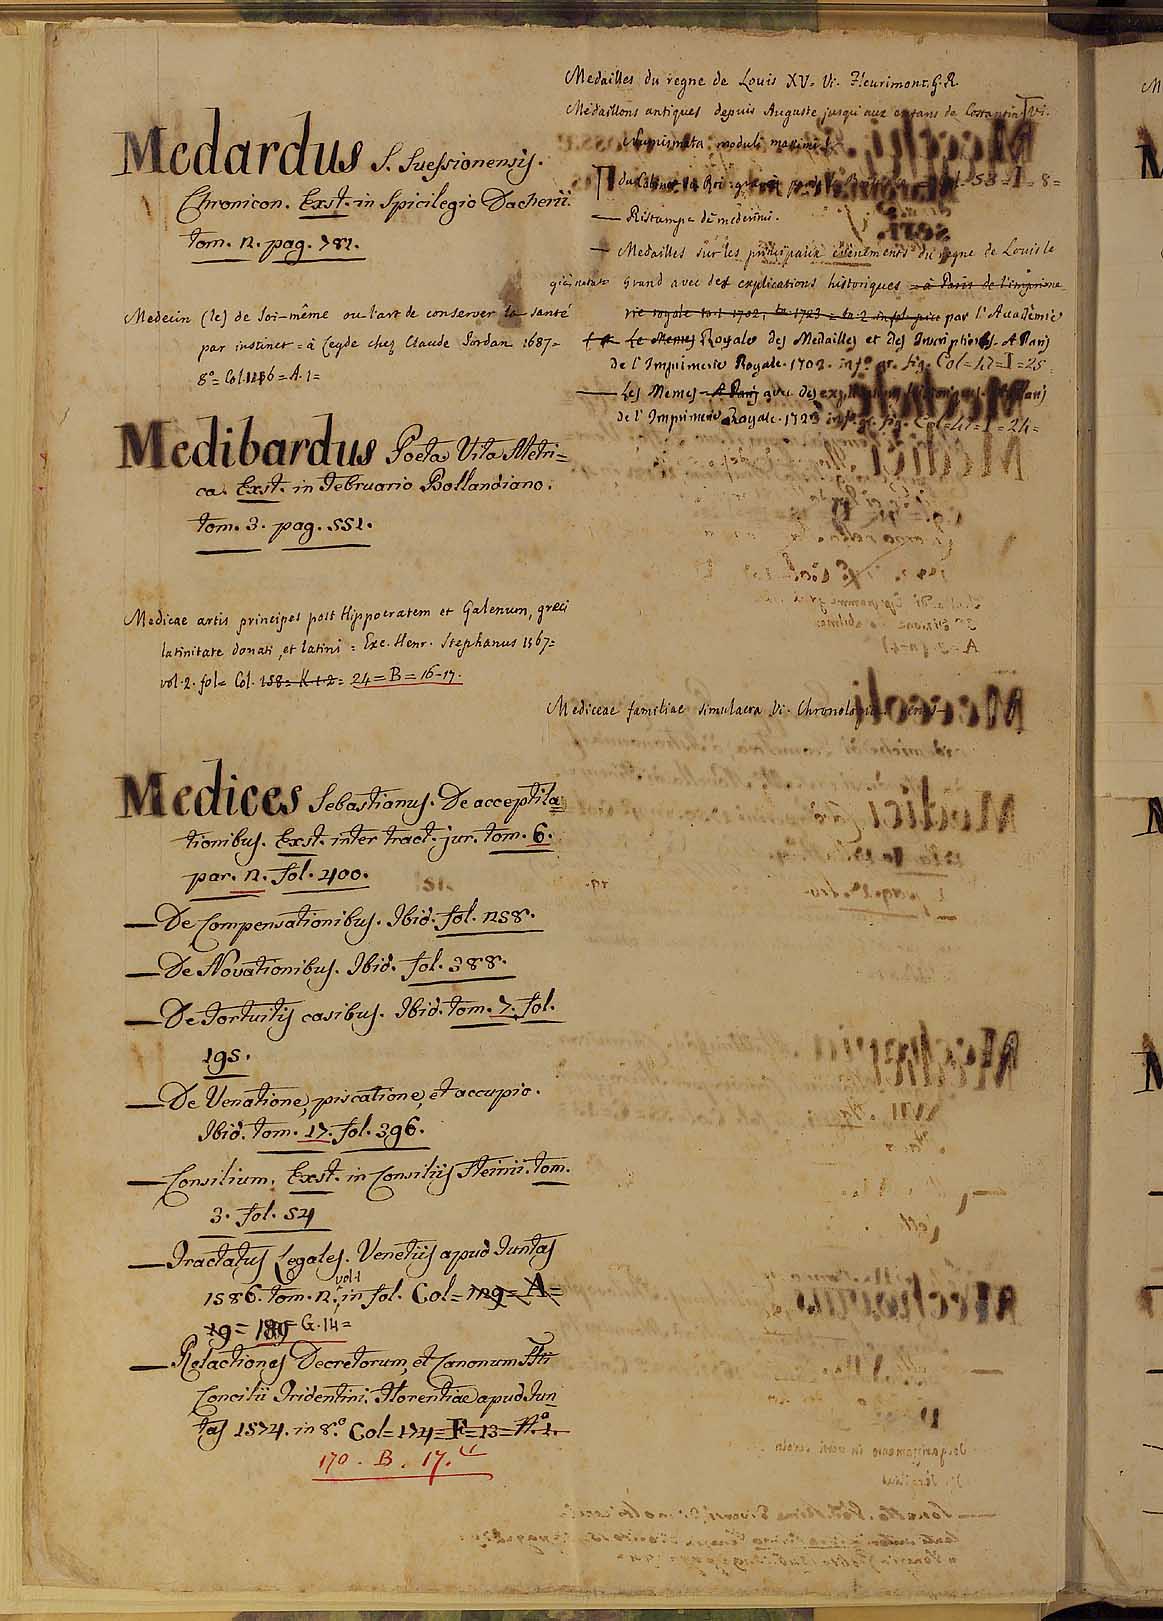 Medardus S. Suessionensis.
Chronicon. Exst. in Spicilegio Dacherii
tom. 2. pag. 781.
Medecin (le) de Soi-même ou l'art de conserver la santé
par instinct = à Leyde chez Claude Jordan 1687=
8°= Col.
Medibardus Poeta Vita Metri=
ca. Exst. in Februario Bollandiano.
tom. 3. pag. 551.
Medicae artis principes post Hippocratem et Galenum, greci
latinitate donati, et latini = Exc. Henr. Stephanus 1567=
vol. 2. fol= Col. 158= K. 1. 2= 24=B=16-17.
Medices Sebastianus. De acceptila=
tionibus. Exst. inter tract. jur. tom. 6.
par. 2. fol. 400.
— De Compensationibus. Ibid. fol. 258.
— De Novationibus. Ibid. fol. 388.
— De Fortuitis casibus. Ibid. tom. 7. fol.
195.
— De Venatione, piscatione, et accupio.
Ibid. tom. 17. fol. 396.
— Consilium. Exst. in Consiliis Steinii. tom.
3. fol. 54
— Tractatus Legales. Venetiis apud Juntas
vol. 1
1586. tom. 2. in fol. Col= A=
19= G. 14=
— Relactiones Decretorum, et Canonum
Concilii Tridentini. Florentiae apud Jun
tas 1574. in 8.° Col=174=F=13=N.° 1.
170. B. 17.
Medailles du regne de Louis XV. Vi. Fleurimont. G. R.
Medaillons antiques depuis Auguste jusqu'aux enfans de Costantin Vi.
Numismata moduli maximi
du Cabinet du Roi 53=I=8=
— Ristampe de medesimi.
— Medailles sur les principaux evenements du regne de Louis le
Grand avec des explications historiques = à Paris de l'imprime
rie royale par l'Academie
Le Memes Royale des Medailles et des Inscriptions. A Paris
de l'Imprimerie Royale. 1702. in f° gr. fig. Col=47=I=25
— Les Memes A Paris avec des
de l'Imprimerie Royale. 1723 in fig. Col=47=I=24=
Mediceae familiae simulacra Vi. Chronologica